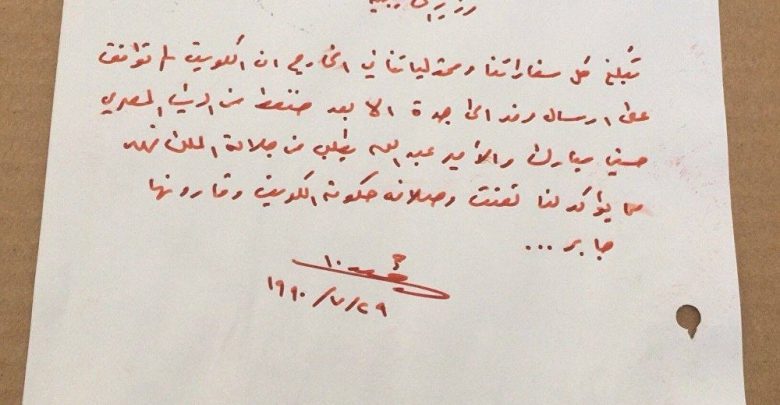 تبلغ كل سفاراتنا وممثلياتنا في الخارج ان الكويت لم توافق
على ارسال وفد الى جدة الا بعد ضغط من الرئيس المصري
حسني مبارك والأمير عبدالله بطلب من جلالة الملك فهد
مما يؤكد لنا تعنت وصلافه حكومة الكويت وقارونها
جابر ...
١٩٩٠/٧/٢٩